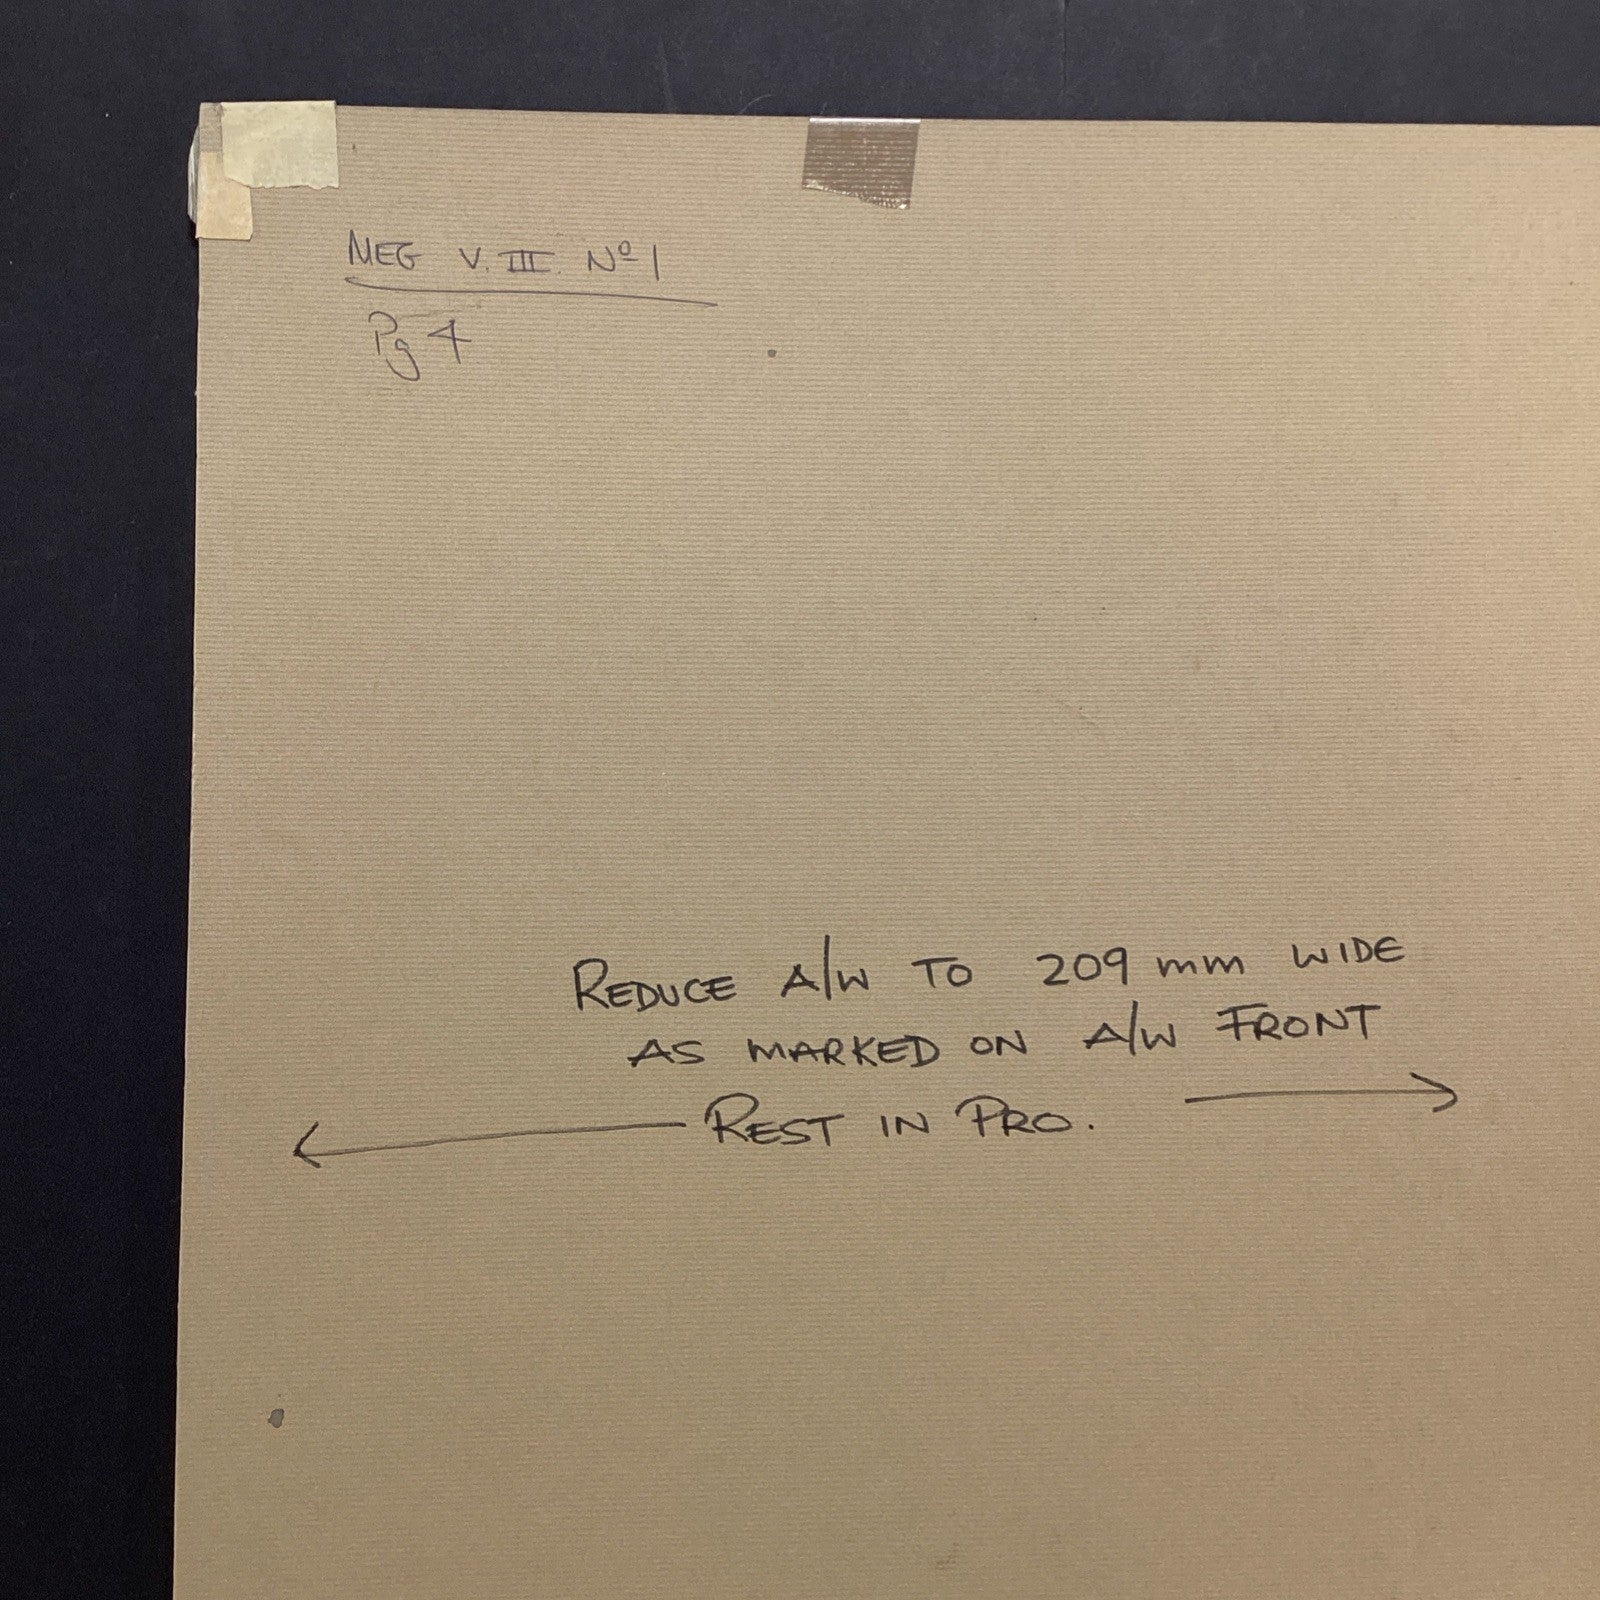 MEG V.III. Nº 1
Pg 4
REDUCE A/W TO 209 mm WIDE
AS MARKED ON A/W FRONT
REST IN PRO.